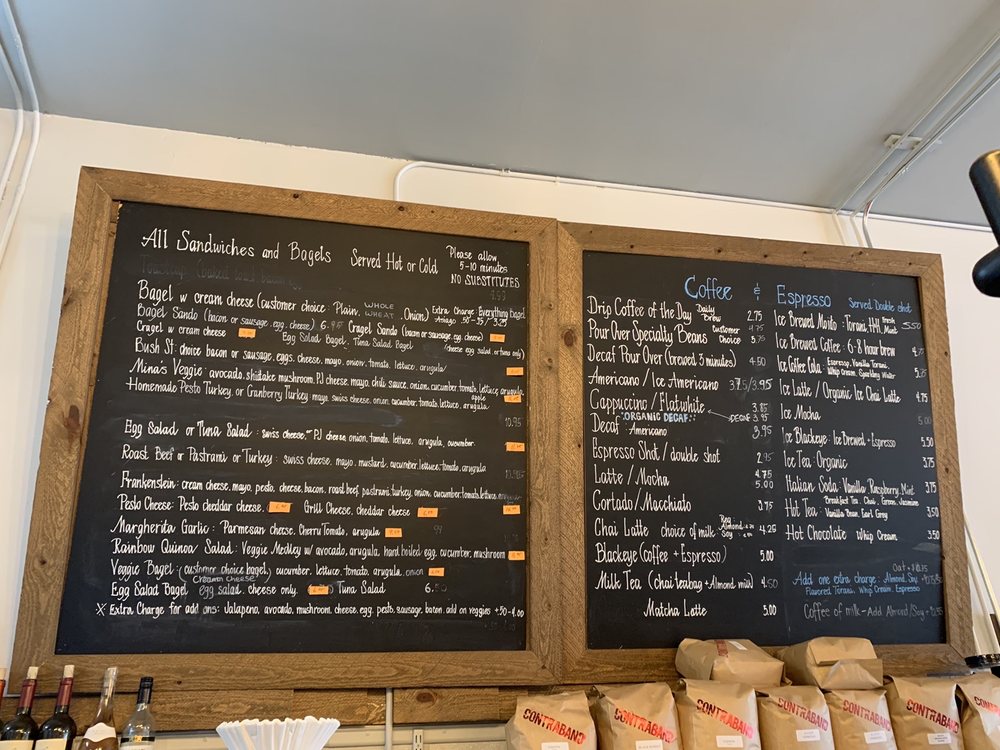 All Sandwiches and Bagels Served Hot or Cold
Please allow
5-10 minutes
NO SUBSTITUTES
Bagel w cream cheese (customer choice: Plain, WHOLE WHEAT, Onion) Extra Charge Everything Bagel
Bagel Sando (bacon or sausage, egg, cheese) 6. Cragel Sando (bacon or sausage, egg, cheese)
Cragel w cream cheese Egg Salad Bagel, Tuna Salad Bagel (cheese egg salad or tuna only)
Bush St: choice bacon or sausage, eggs, cheese, mayo, onion, tomato, lettuce, arugula
Mina's Veggie: avocado, shiitake mushroom, PJ cheese, mayo, chili sauce, onion, cucumber, tomato, lettuce, arugula
Homemade Pesto Turkey, or Cranberry Turkey: mayo, swiss cheese, onion, cucumber, tomato, lettuce, arugula apple
10.95
Egg Salad or Tuna Salad: swiss cheese, PJ cheese, onion, tomato, lettuce, arugula, cucumber
Roast Beef or Pastrami or Turkey: swiss cheese, mayo, mustard, cucumber, lettuce, tomato, arugula
Frankenstein: cream cheese, mayo, pesto, cheese, bacon, roast beef, pastrami, turkey, onion, cucumber, tomato, lettuce, arugula
Pesto Cheese: Pesto cheddar cheese, Grill Cheese, cheddar cheese
Margherita Garlic: Parmesan cheese, Cherry Tomato, arugula
Rainbow Quinoa Salad: Veggie Medley w/ avocado, arugula, hard boiled egg, cucumber, mushroom
Veggie Bagel: (customer choice bagel), cucumber, lettuce, tomato, arugula, onion
(Creamn Cheese)
Egg Salad Bagel egg salad, cheese only Tuna Salad 6.
X Extra Charge for add ons: Jalapano, avocado, mushroom, cheese, egg, pesto, sausage, bacon, add on veggies +.50-4.00
Coffee & Espresso Served Double shot
Drip Coffee of the Day Daily Brew 2.75
Pour Over Specialty Beans Customer Choice 4.75 3.75
Decaf Pour Over (brewed 3 minutes) 4.50
Americano / Ice Americano 3.75/3.95
Cappuccino / Flatwhite 3.85
:ORGANIC DECAF: DECAF 3.95
Decaf: Americano 3.95
Espresso Shot / double shot 2.95
Latte / Mocha 4.75 5.00
Cortado / Macchiato 3.75
Chai Latte choice of milk Reg Almond Soy 4.25
Blackeye (Coffee + Espresso) 5.00
Milk Tea (Chai teabag + Almond milk) 4.50
Matcha Latte 5.00
Ice Brewed Mojito: Torani, H+H, Fresh Mint 5.50
Ice Brewed Coffee: 6-8 hour brew
Ice Coffee Cola: Espresso, Vanilla Torani, Whip Cream, Sparkling Water 5.75
Ice Latte / Organic Ice Chai Latte 4.75
Ice Mocha 5.00
Ice Blackeye: Ice Brewed + Espresso 5.50
Ice Tea: Organic 3.75
Italian Soda: Vanilla, Raspberry, Mint 3.75
Hot Tea: Breakfast Tea, Chai, Green, Jasmine Vanilla Bean, Earl Grey 3.50
Hot Chocolate Whip Cream 3.50
Oat
Add one extra charge: Almond, Soy
Flavored Torani, Whip Cream, Espresso
Coffee of milk - Add Almond/Soy
CONTRABAND
CONTRABAND
CONTRABAND
CONTRABAND
CONTRABAND
CONTRABAND